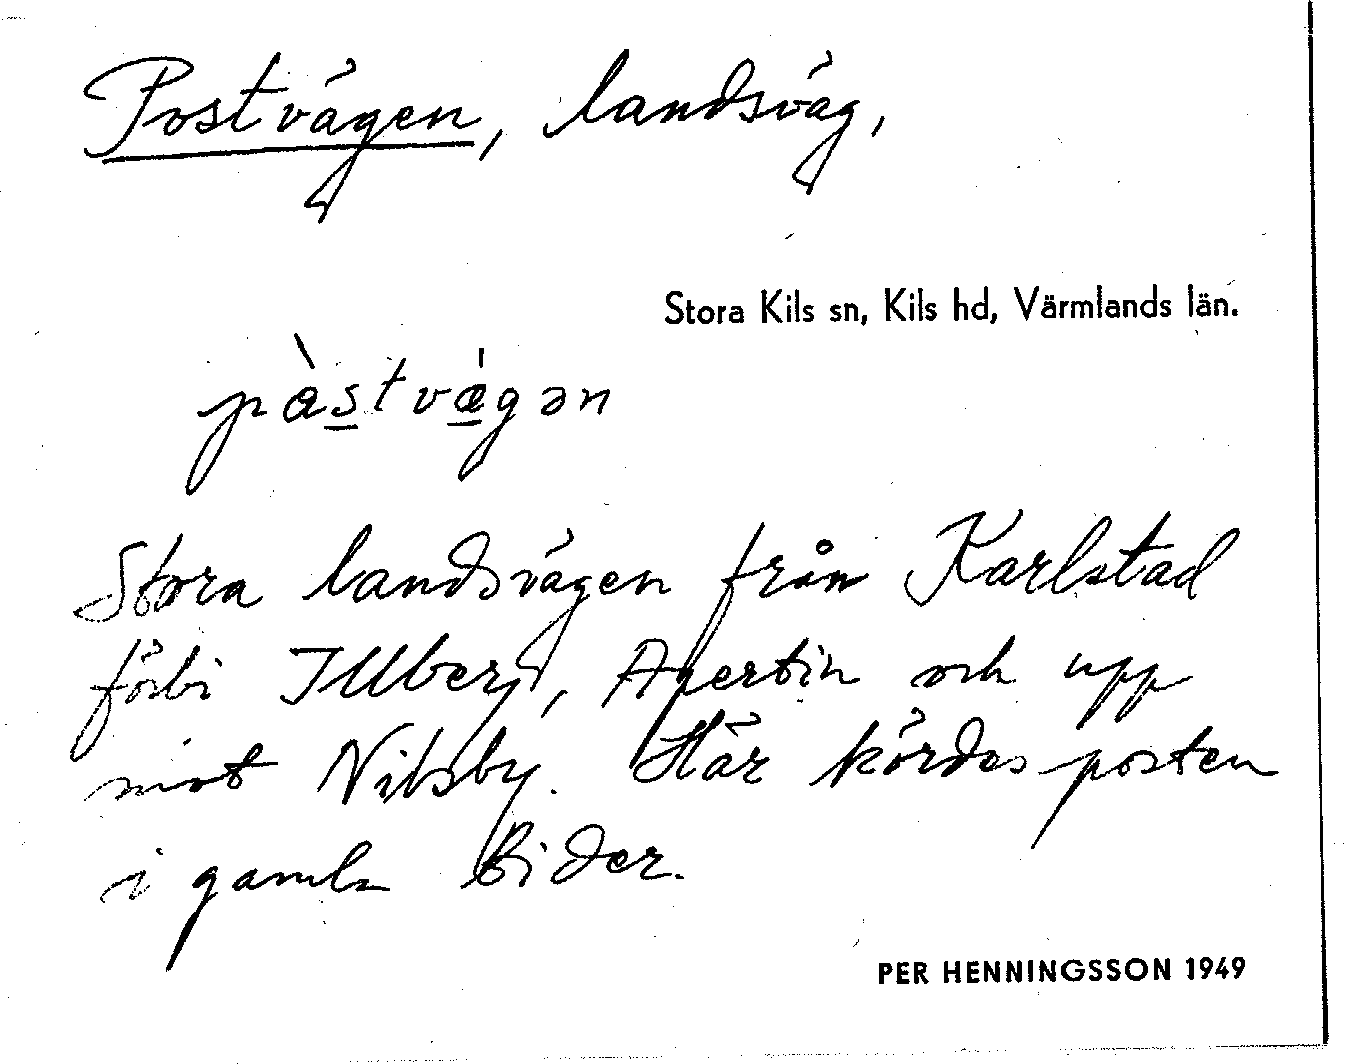 Postvägen, landsväg,
Stora Kils sn, Kils hd, Värmlands län.
pàstvǽgən
Stora landsvägen från Karlstad
förbi Illberg, Apertin och upp
mot Nilsby. Här kördes posten
i gamla tider.
PER HENNINGSSON 1949